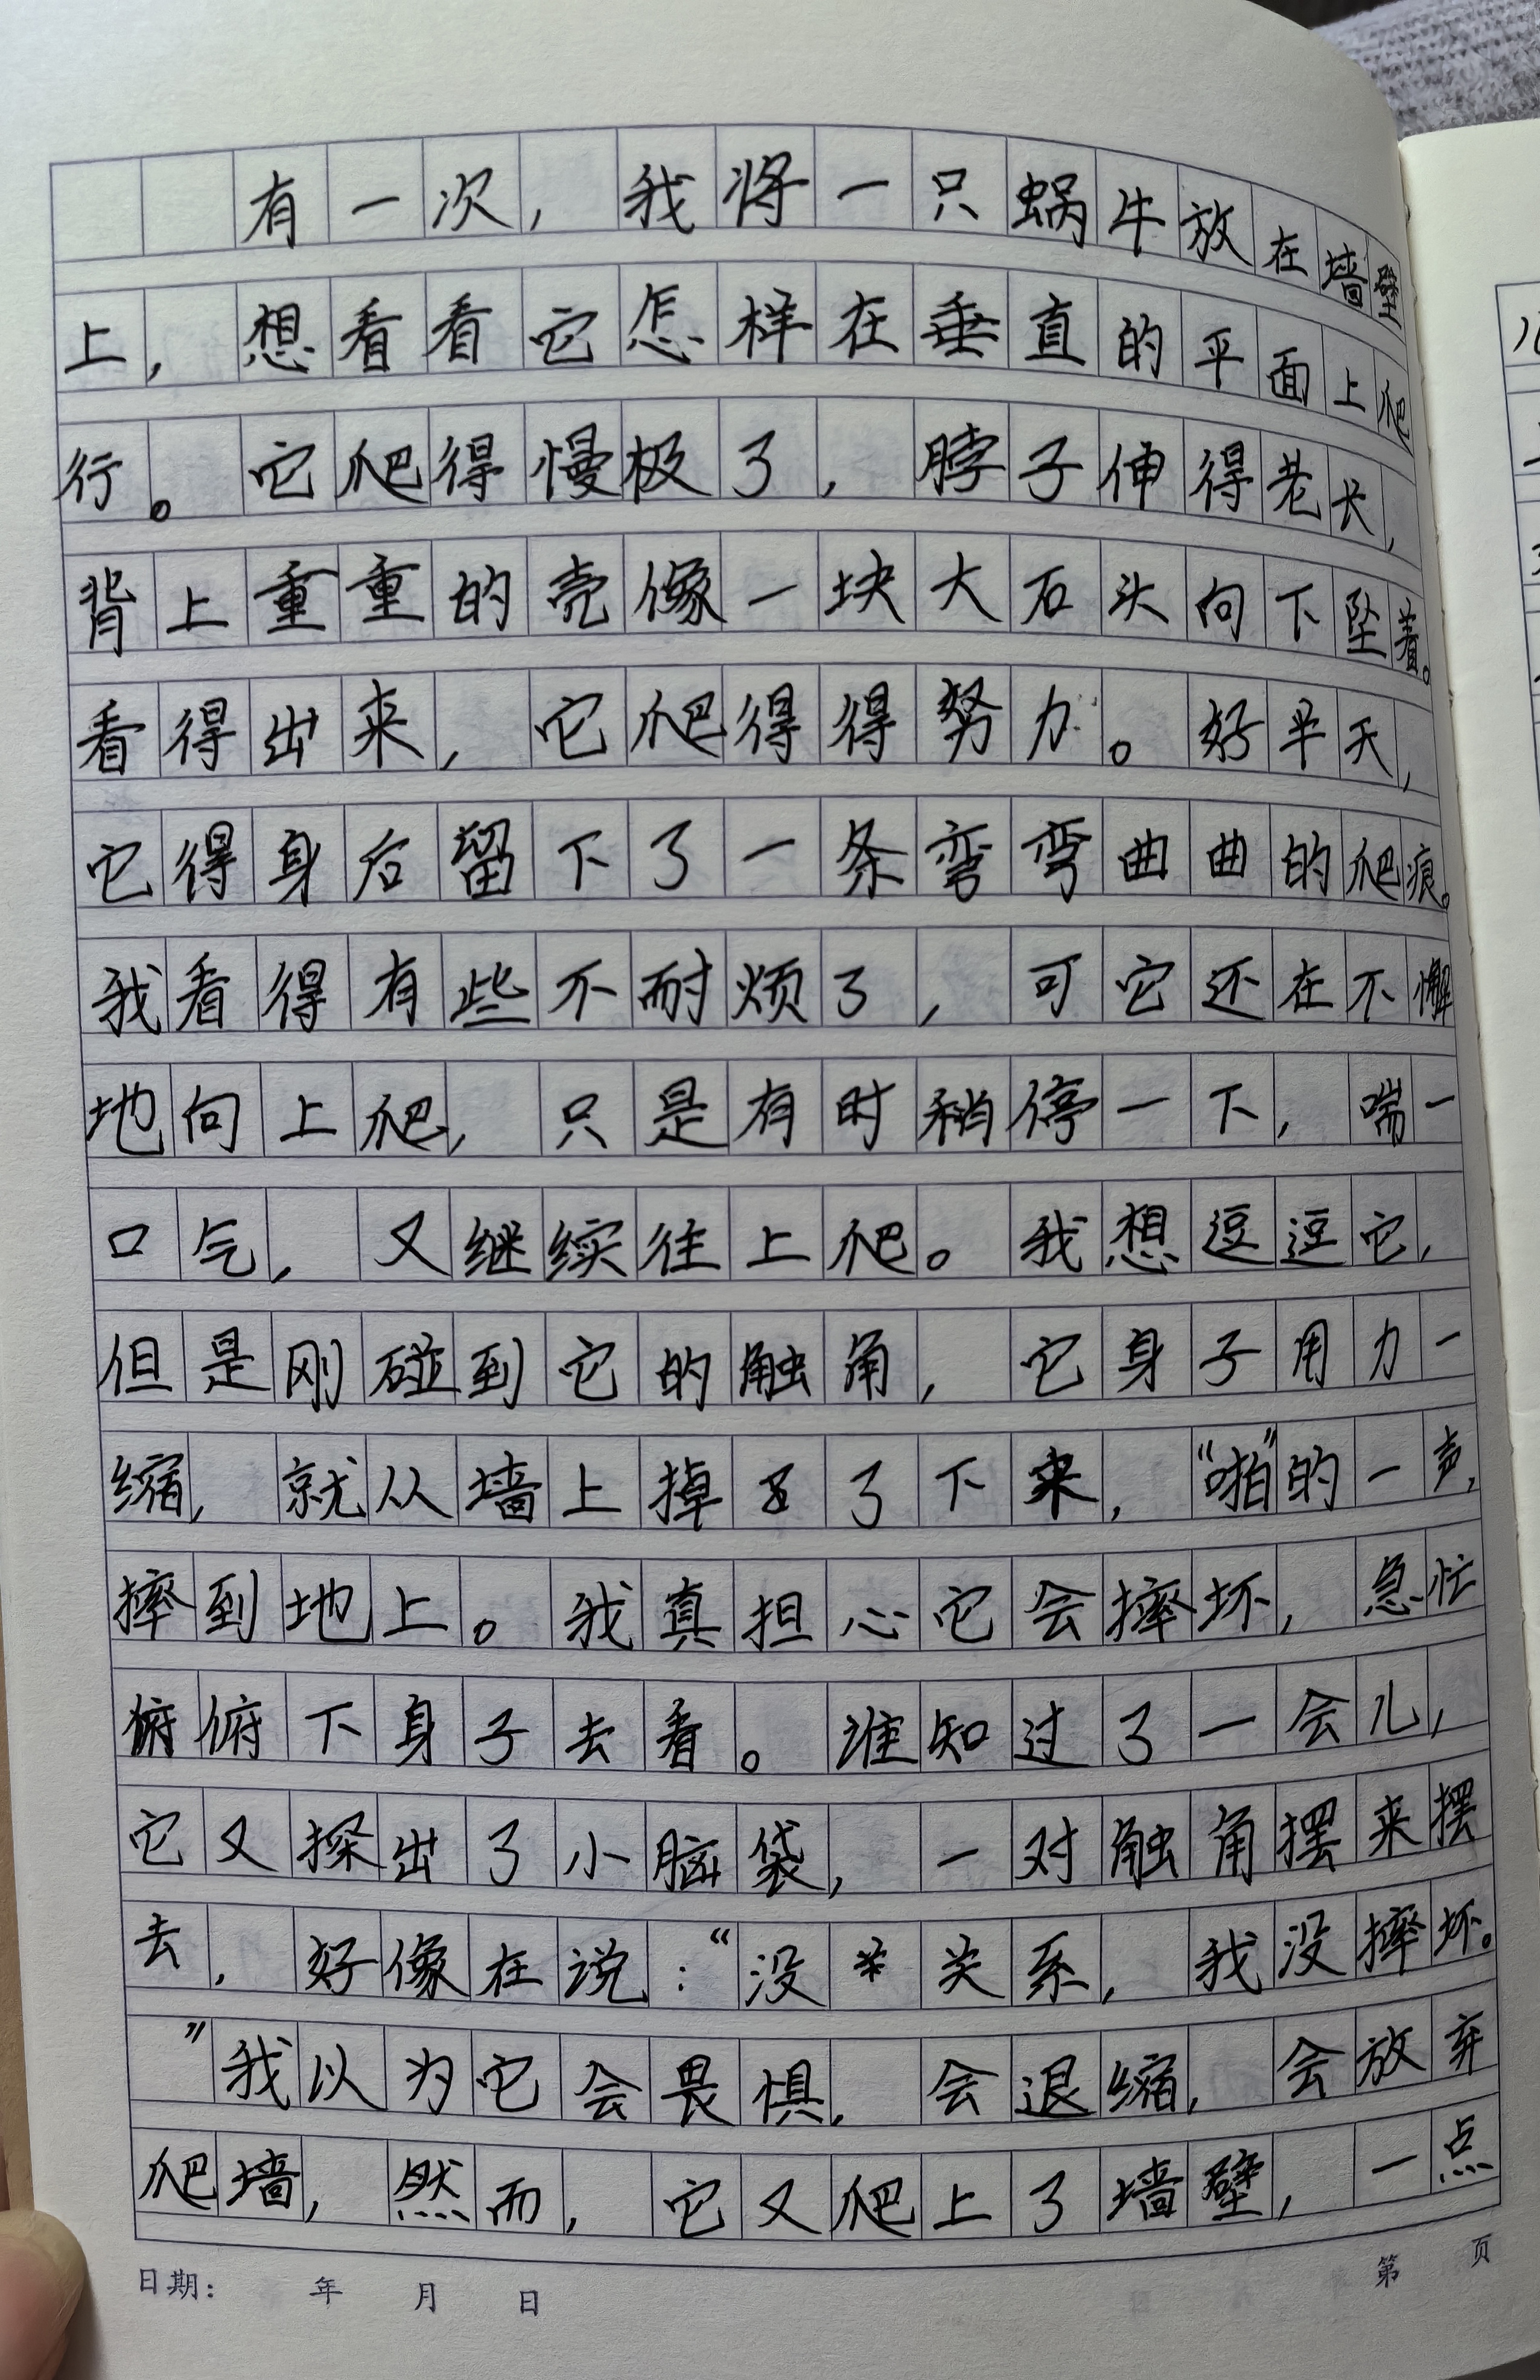 有一次，我将一只蜗牛放在墙壁
上，想看看它怎样在垂直的平面上爬
行。它爬得慢极了，脖子伸得老长，
背上重重的壳像一块大石头向下坠着。
看得出来，它爬得得努力。好半天，
它得身后留下了一条弯弯曲曲的爬痕。
我看得有些不耐烦了，可它还在不懈
地向上爬，只是有时稍停一下，喘一
口气，又继续往上爬。我想逗逗它，
但是刚碰到它的触角，它身子用力一
缩，就从墙上掉了下来，“啪”的一声，
摔到地上。我真担心它会摔坏，急忙
俯俯下身子去看。谁知过了一会儿，
它又探出了小脑袋，一对触角摆来摆
去，好像在说：“没关系，我没摔坏。
”我以为它会畏惧，会退缩，会放弃
爬墙，然而，它又爬上了墙壁，一点
日期： 年 月 日 第 页